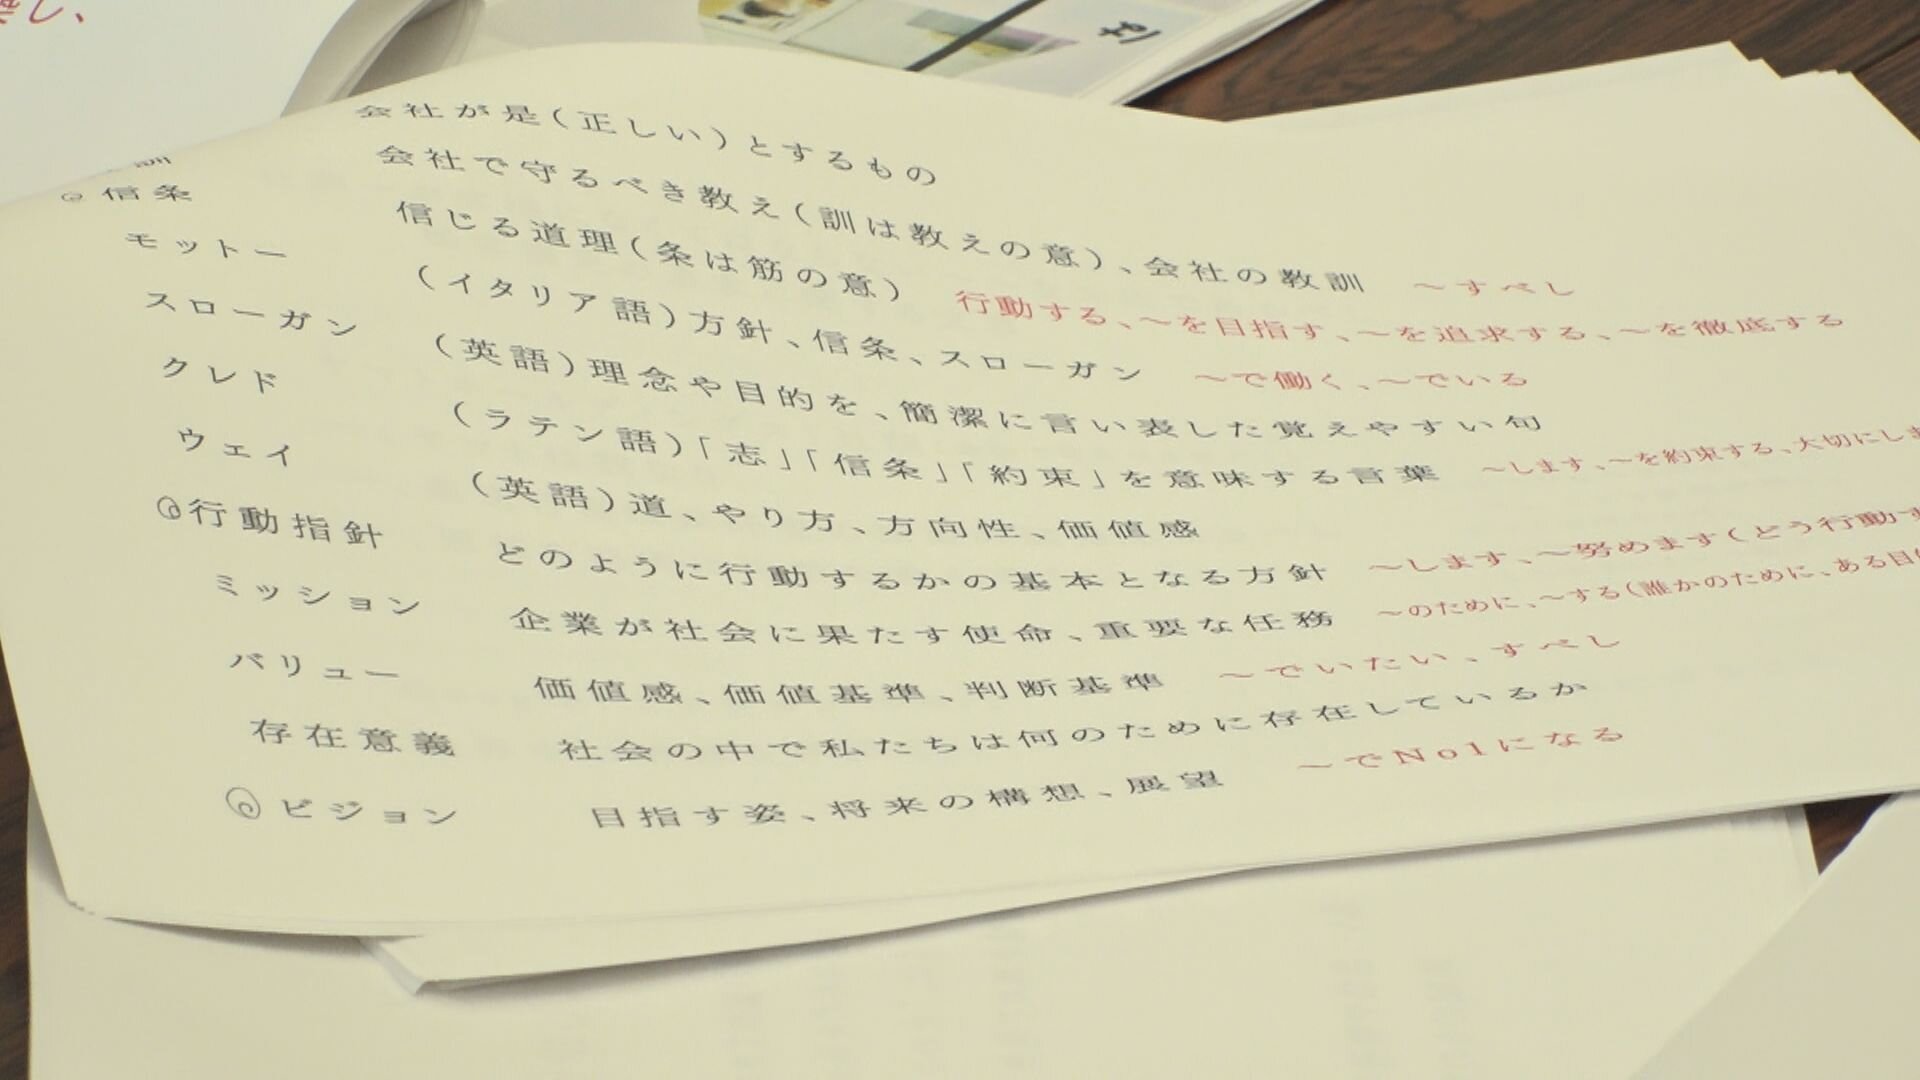 し、
会社が是(正しい)とするもの
訓 会社で守るべき教え(訓は教えの意)、会社の教訓 〜すべし
信条 信じる道理(条は筋の意) 行動する、〜を目指す、〜を追求する、〜を徹底する
モットー (イタリア語)方針、信条、スローガン 〜で働く、〜でいる
スローガン (英語)理念や目的を、簡潔に言い表した覚えやすい句
クレド (ラテン語)「志」「信条」「約束」を意味する言葉 〜します、〜を約束する、大切にしま
ウェイ (英語)道、やり方、方向性、価値感
行動指針 どのように行動するかの基本となる方針 〜します、〜努めます(どう行動す
ミッション 企業が社会に果たす使命、重要な任務 〜のために、〜する(誰かのために、ある目
バリュー 価値感、価値基準、判断基準 〜でいたい、すべし
存在意義 社会の中で私たちは何のために存在しているか
ビジョン 目指す姿、将来の構想、展望 〜でNo1になる